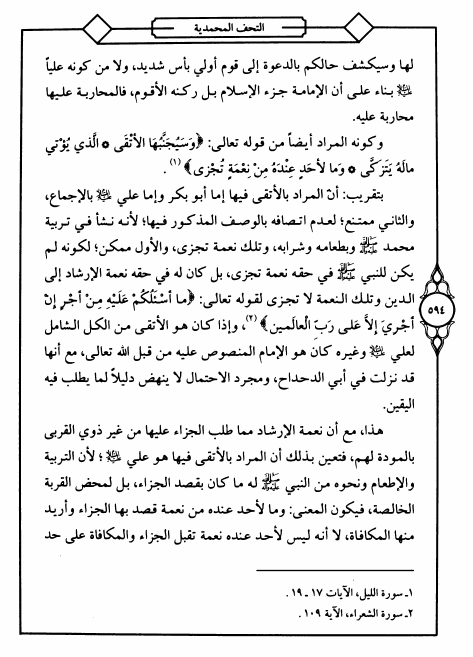 التحف المحمدية
لها وسيكشف حالكم بالدعوة إلى قوم أولي بأس شديد، ولا من كونه علياً
ﷺ بناء على أن الإمامة جزء الإسلام بل ركنه الأقوم، فالمحاربة عليها
محاربة عليه.
وكونه المراد أيضاً من قوله تعالى: ﴿وَسَيُجَنَّبُهَا الأَتْقَى * الَّذي يُؤْتي
مالَهُ يَتَزَكَّى * وَمَا لأَحَدٍ عِنْدَهُ مِنْ نِعْمَةٍ تُجْزى﴾(١).
بتقريب: أنّ المراد بالأتقى فيها إما أبو بكر وإما علي ﷺ بالإجماع،
والثاني ممتنع؛ لعدم اتصافه بالوصف المذكور فيها؛ لأنه نشأ في تربية
محمد ﷺ وبطعامه وشرابه، وتلك نعمة تجزى، والأول ممكن؛ لكونه لم
يكن للنبي ﷺ في حقه نعمة تجزى، بل كان له في حقه نعمة الإرشاد إلى
الدين وتلك النعمة لا تجزى لقوله تعالى: ﴿ما أَسْئَلُكُمْ عَلَيْهِ مِنْ أَجْرٍ إِنْ
أَجْرِيَ إِلاَّ عَلى رَبِّ الْعالَمين﴾(٢)، وإذا كان هو الأتقى من الكل الشامل
لعلي ﷺ وغيره كان هو الإمام المنصوص عليه من قبل الله تعالى، مع أنها
قد نزلت في أبي الدحداح، ومجرد الاحتمال لا ينهض دليلاً لما يطلب فيه
اليقين.
هذا، مع أن نعمة الإرشاد مما طلب الجزاء عليها من غير ذوي القربى
بالمودة لهم، فتعين بذلك أن المراد بالأتقى فيها هو علي ﷺ؛ لأن التربية
والإطعام ونحوه من النبي ﷺ له ما كان بقصد الجزاء، بل لمحض القربة
الخالصة، فيكون المعنى: وما لأحد عنده من نعمة قصد بها الجزاء وأريد
منها المكافاة، لا أنه ليس لأحد عنده نعمة تقبل الجزاء والمكافاة على حد
١ـ سورة الليل، الآيات ١٧ ـ ١٩.
٢ـ سورة الشعراء، الآية ١٠٩.
٥٩٤